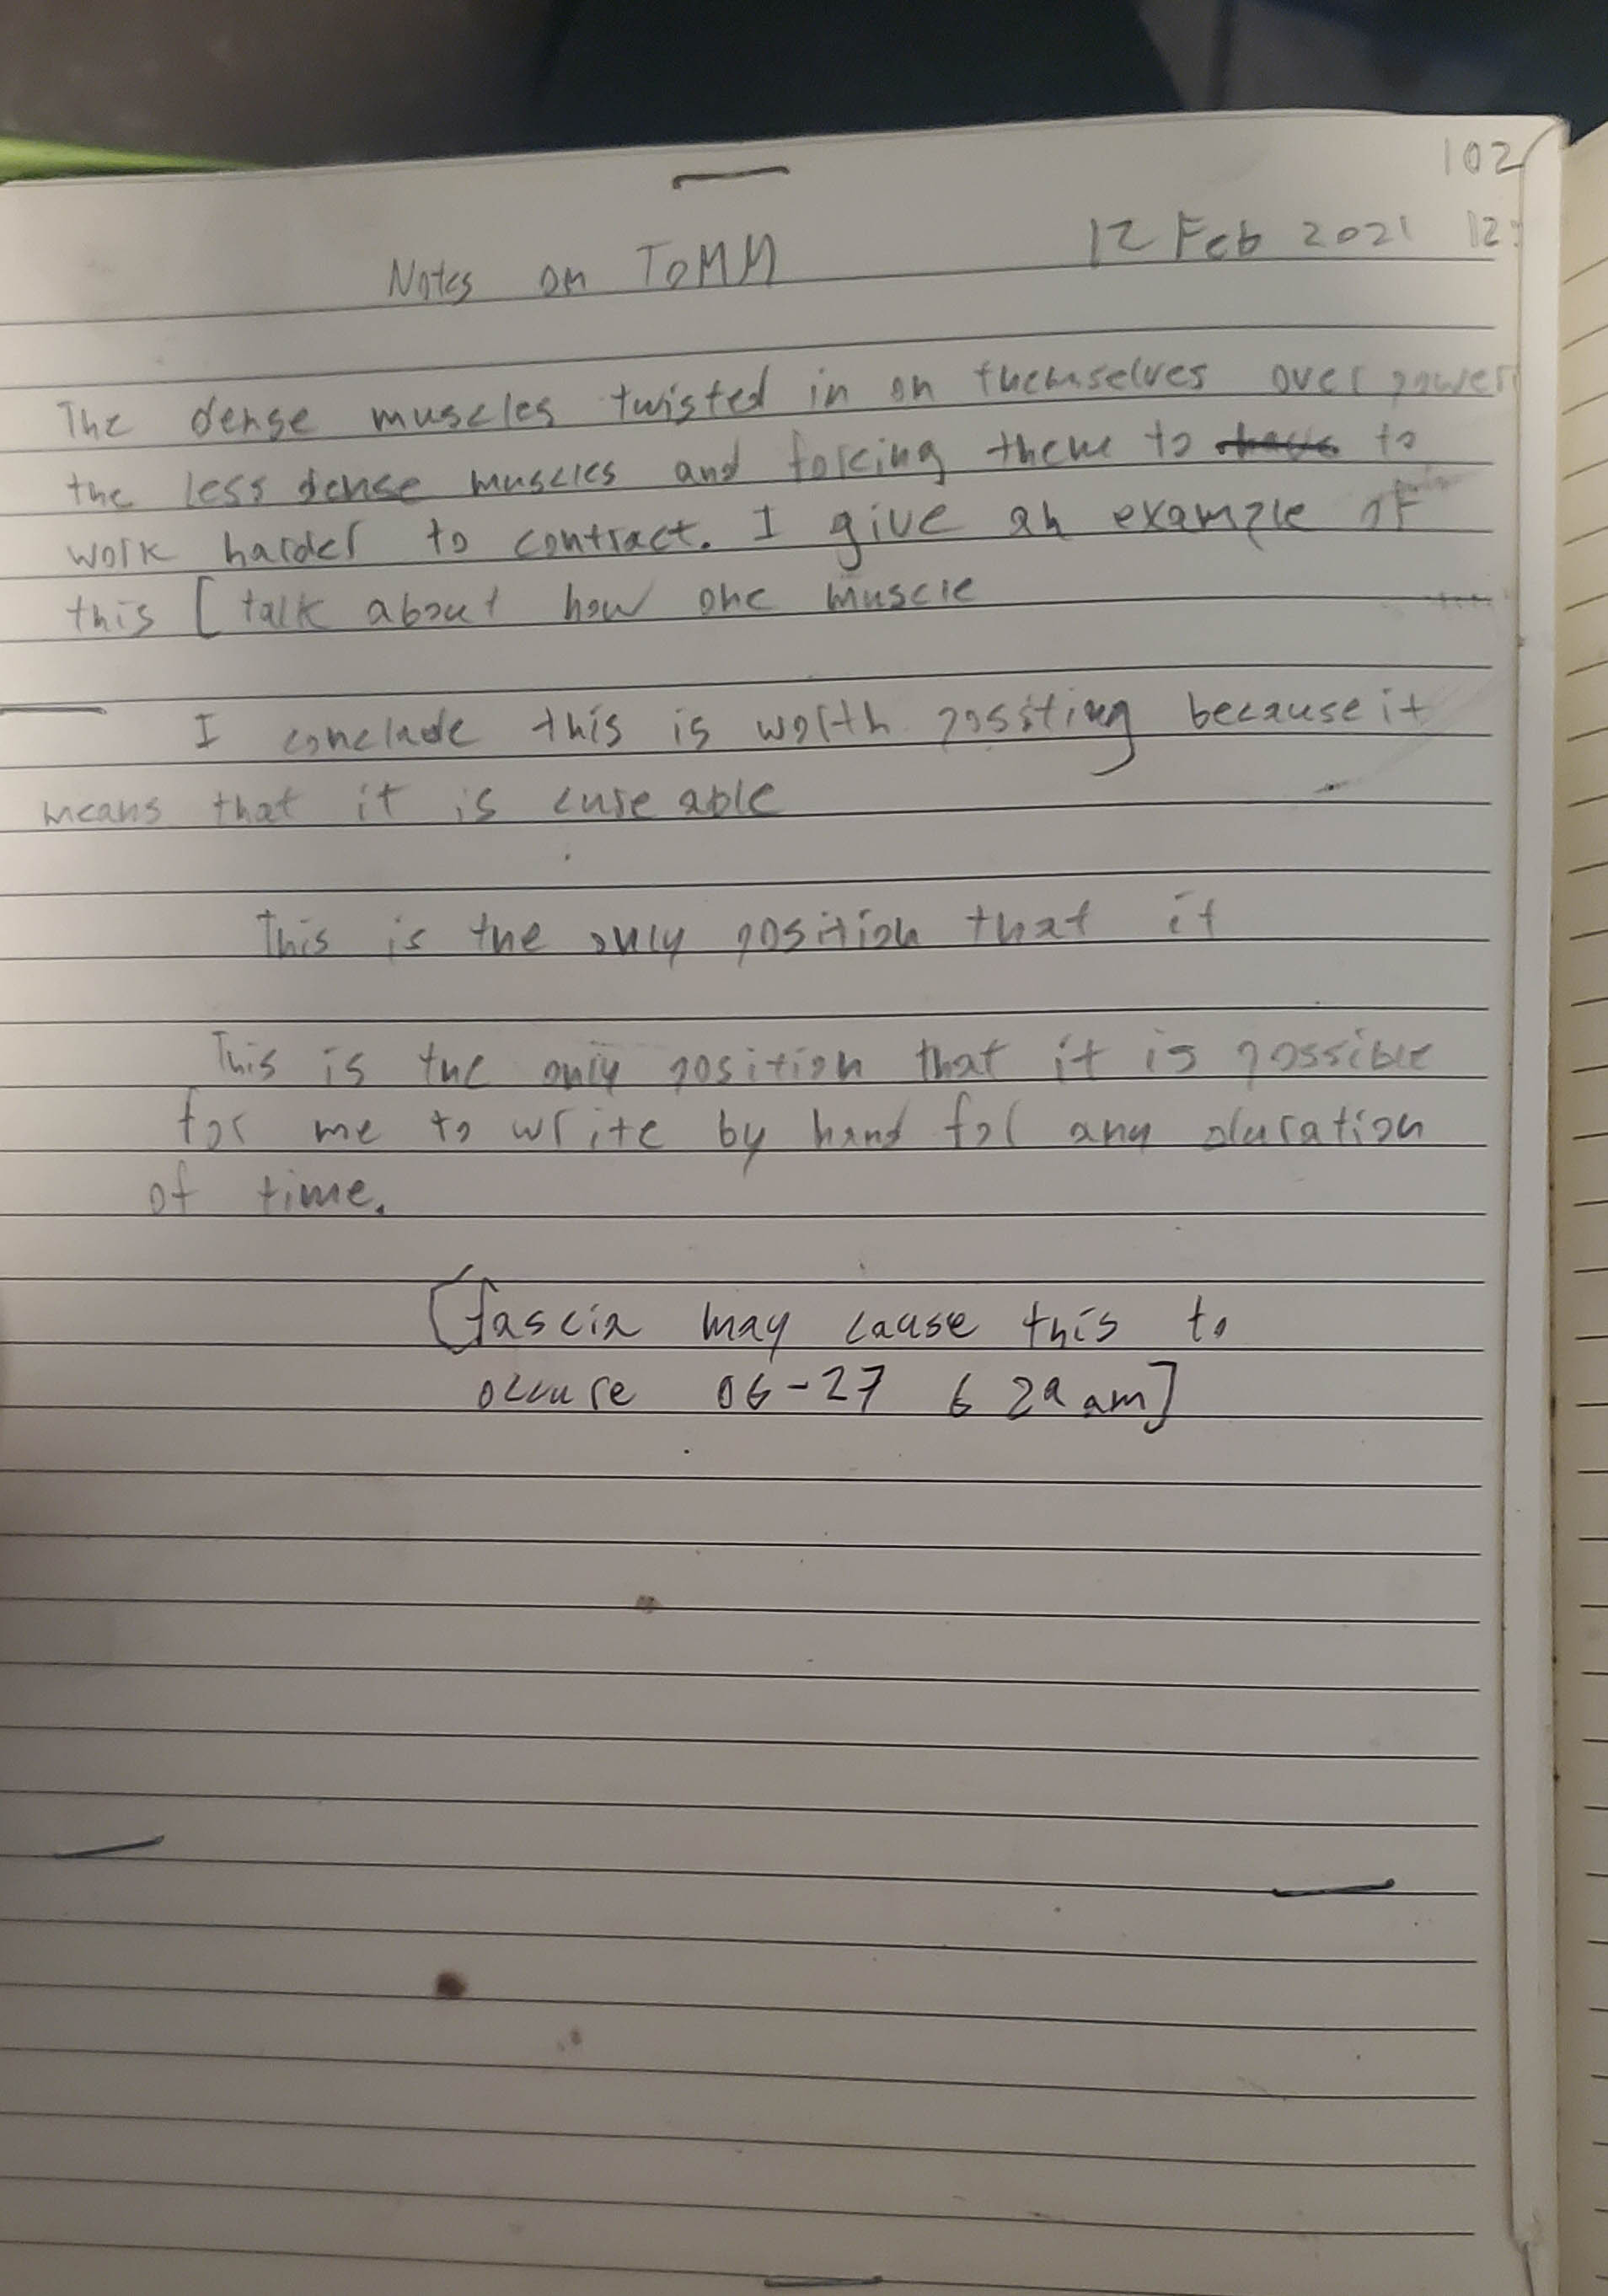 102
12 Feb 2021 12:
Notes on ToMM
The dense muscles twisted in on themselves over power
the less dense muscles and forcing them to have to
work harder to contract. I give an example of
this [talk about how one muscle
I conclude this is worth possiting because it
means that it is cureable
This is the only position that it
This is the only position that it is possible
for me to write by hand for any duration
of time.
[fascia may cause this to
occure 06-27 6 2a am]